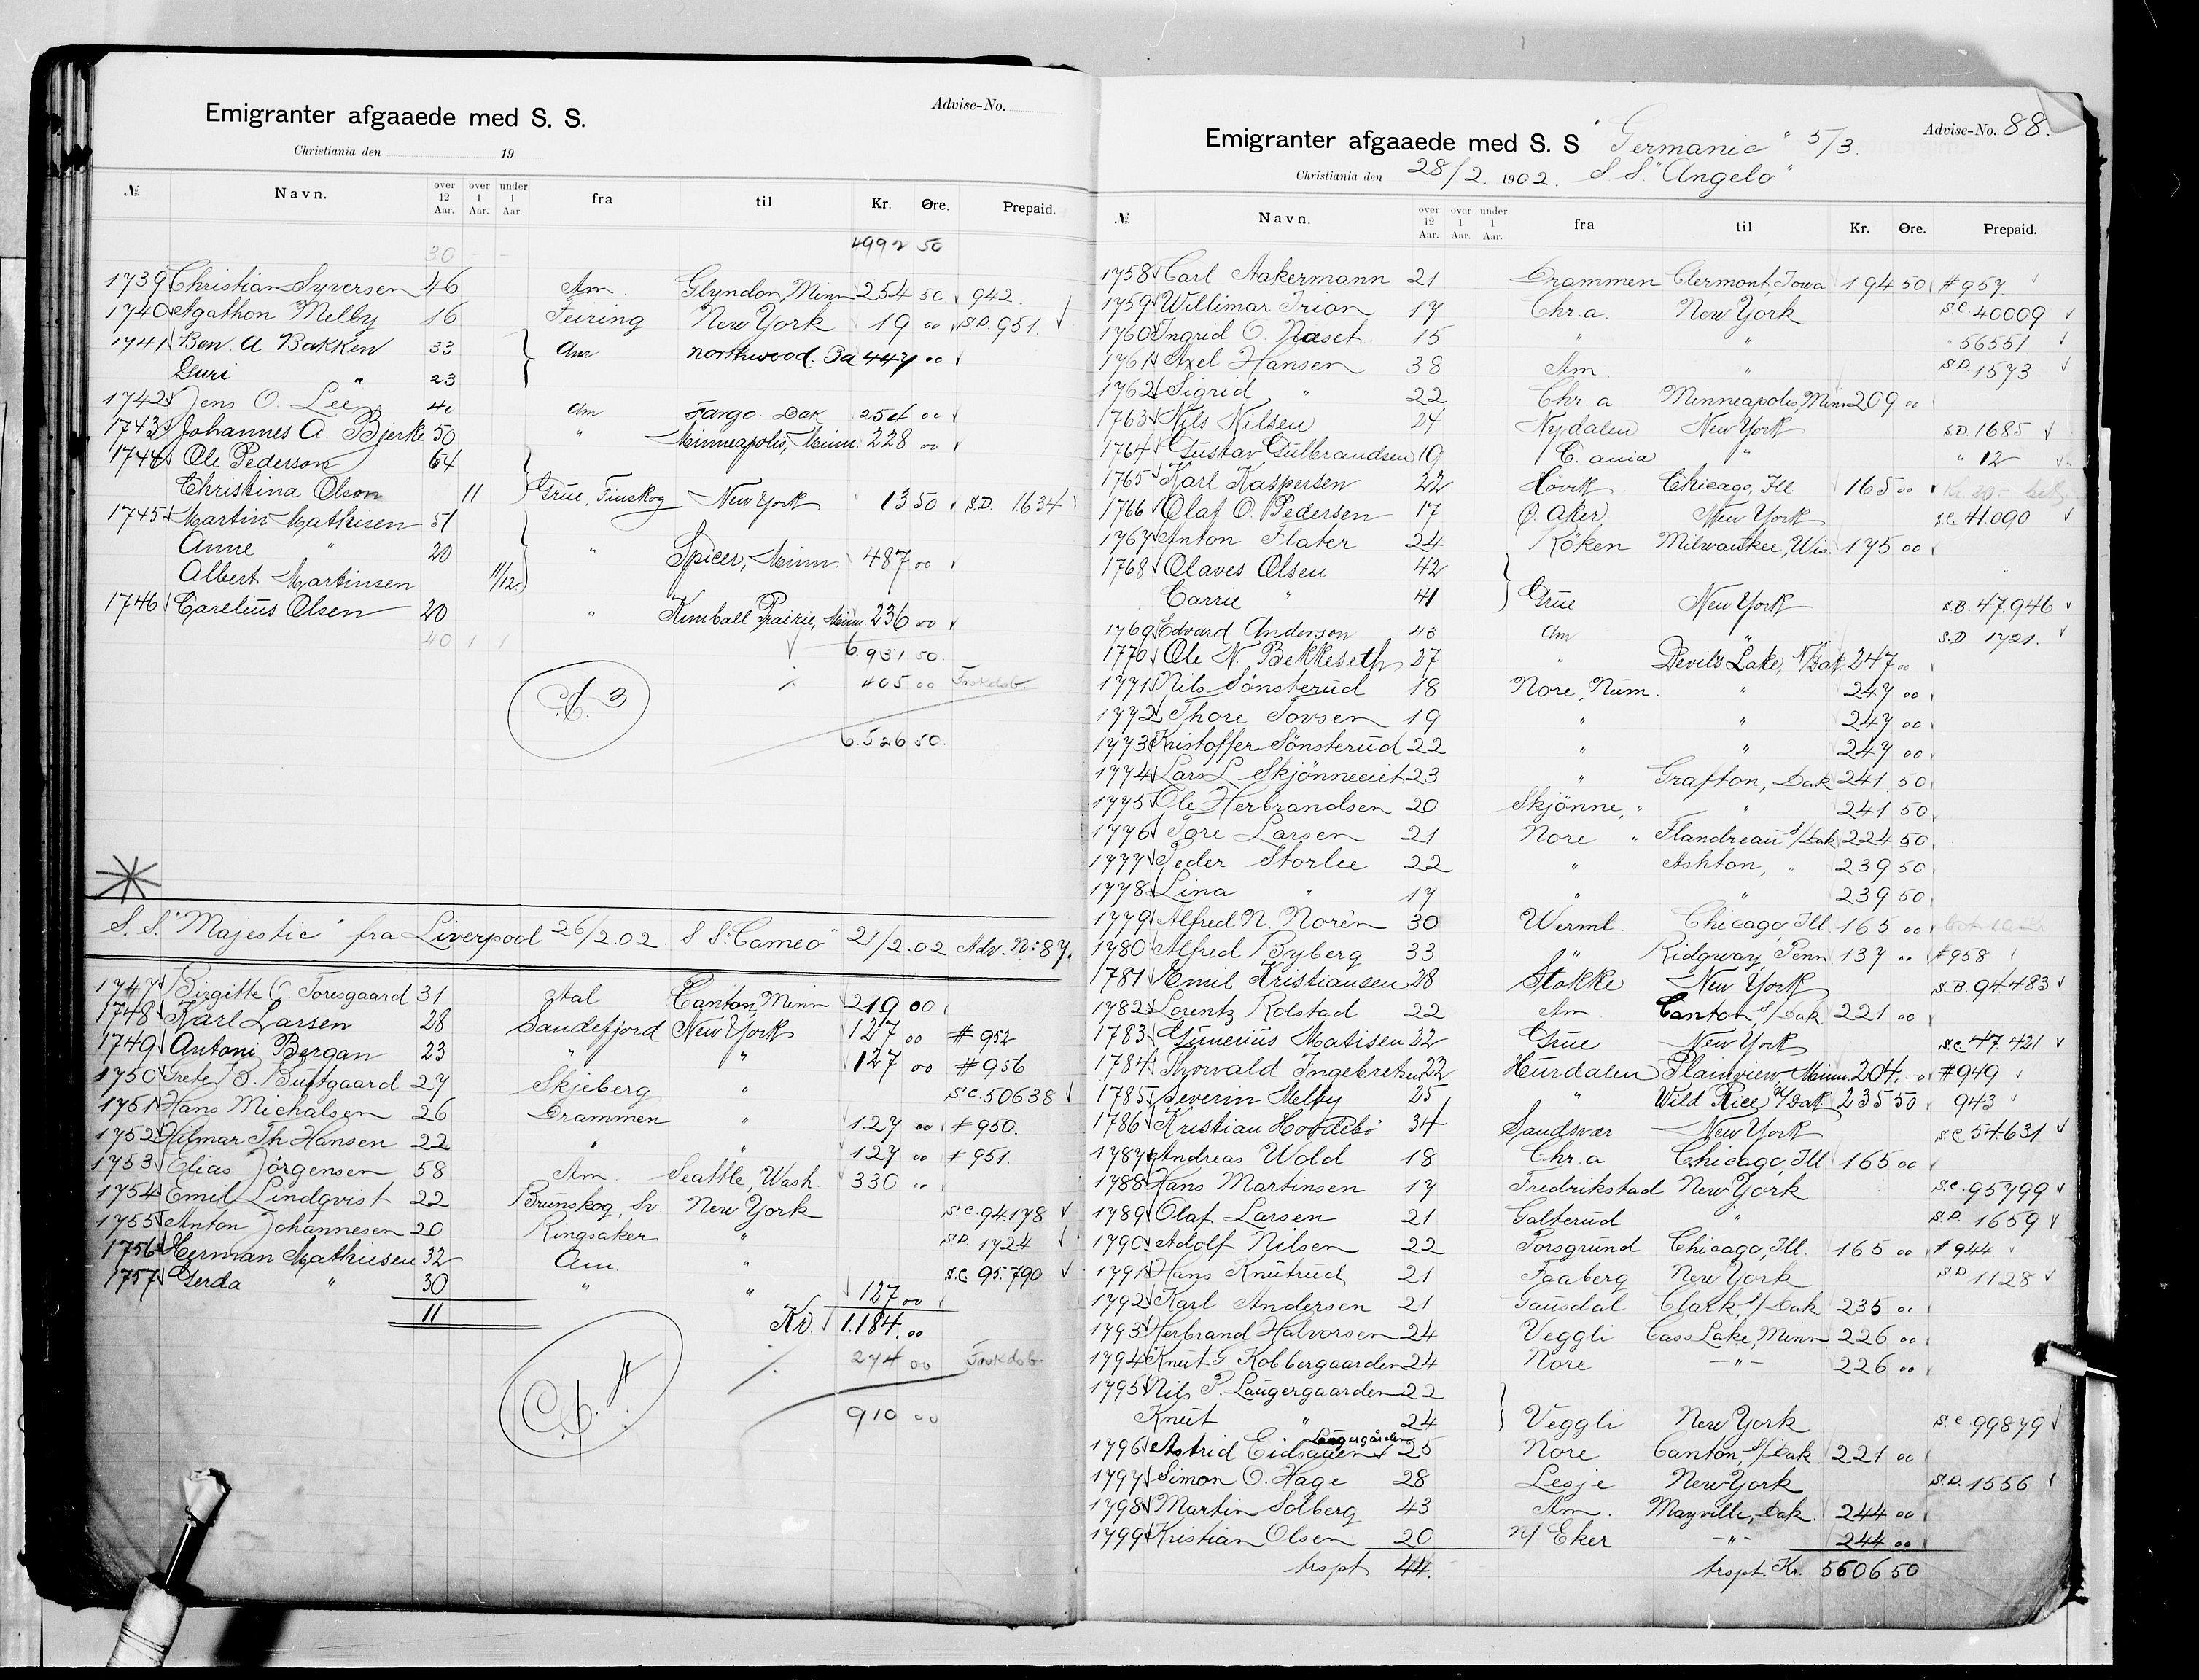 Advise-No.
Emigranter afgaaede med S. S.
Christiania den 19
№ Navn. over 12 Aar. over 1 Aar. under 1 Aar. fra til Kr. Øre. Prepaid.
30 - - 4992 50
1739 Christian Syversen 46 Am. Glyndon, Minn 254 50 942.
1740 Agathon Melby 16 Feiring New York 19 00 S.D. 951.
1741 Ben. A Bakken 33 Am Northwood. 447 00
Guri " 23
1742 Jens O. Lee 40 Am Fargo. Dak 254 00
1743 Johannes A. Bjerke 50 " Minneapolis, Minn. 228 00
1744 Ole Pederson 64
Christina Olson 11 Grue, Finskog New York 13 50 S.D. 1634
1745 Martin Mathisen 51
Anne " 20 " Spicer, Minn. 487 00
Albert Martinsen 11/12
1746 Carelius Olsen 20 " Kimball Prairie, Minn. 236 00
40 1 1 6.931 50.
405 00
6.526 50.
S.S. "Majestic" fra Liverpool 26/2.02. S S. "Cameo" 21/2.02 Adv. N: 87.
1747 Birgitte C. Toresgaard 31 Aal Canton, Minn 219 00
1748 Karl Larsen 28 Sandefjord New York 127 00 # 952
1749 Antoni Bergan 23 " " 127 00 # 956
1750 Grete B. Buttgaard 27 Skjeberg " S.C. 50638
1751 Hans Michalsen 26 Drammen " 127 00 # 950.
1752 Hilmar Th Hansen 22 " " 127 00 # 951.
1753 Elias Jörgensen 58 Am. Seattle, Wash. 330 00
1754 Emil Lindqvist 22 Brunskog, Sv. New York S.C. 94.178
1755 Anton Johannesen 20 Ringsaker " S.D. 1724
1756 Herman Mathiesen 32 Am. " S.C 95.790
1757 Gerda " 30 " " 127 00
11 Kr. 1.184.00
274 00
910 00
Advise-No. 88.
Emigranter afgaaede med S. S "Germanic" 5/3.
Christiania den 28/2. 1902. S S. "Angelo"
№ Navn. over 12 Aar. over 1 Aar. under 1 Aar. fra til Kr. Øre. Prepaid.
1758 Carl Aakermann 21 Drammen Clermont, Iowa 194 50 # 957
1759 Willimar Trion 17 Chr.a. New York S.C 40009
1760 Ingrid O. Naset 15 " " " 56551
1761 Axel Hansen 38 Am. " S.D. 1573
1762 Sigrid " 22 Chr.a Minneapolis, Minn 209 00
1763 Nils Nilsen 24 Nydalen New York S.D. 1685
1764 Gustav Gulbrandsen 19 C.ania " " 12
1765 Karl Kaspersen 22 Hövik Chicago, Ill 165 00
1766 Olaf O. Pedersen 17 Ø. Aker New York S.C. 41.090
1767 Anton Flater 24 Röken Milwaukee, Wis. 175 00
1768 Olaves Olsen 42
Carrie " 41 Grue New York S.B. 47.946
1769 Edvard Anderson 43 Am " S.D 1721.
1770 Ole N. Bekkeseth 27 " Devils Lake, N/Dak 247 00
1771 Nils Sönsterud 18 Nore, Num. " 247 00
1772 Thore Tovsen 19 " " 247 00
1773 Kristoffer Sönsterud 22 " " 247 00
1774 Lars L. 23 " Grafton, Dak 241.50
1775 Ole Herbrandsen 20 Skjönne, " " 241 50
1776 Tore Larsen 21 Nore " Flandreau S/Dak 224 50
1777 Peder Storlie 22 " Ashton, " 239 50
1778 Lina " 17 " " 239 50
1779 Alfred N. Norén 30 Werml. Chicago, Ill 165 00
1780 Alfred Byberg 33 " Ridgway, Penn 137 00 # 958
1781 Emil Kristiansen 28 Stokke New York S.B. 94483
1782 Lorentz Rolstad 22 Am Canton, S/Dak 221 00
1783 Gunerius Matisen 22 Grue New York S.C 47.421
1784 Thorvald Ingebretsen 22 Hurdalen Plainview Minn. 204. # 949
1785 Severin Melby 25 " Wild Rice, N/Dak 235 50 943
1786 Kristian 34 Sandsvær New York S.C 54.631
1787 Andreas Wold 18 Chr.a Chicago, Ill 165 00
1788 Hans Martinsen 17 Fredrikstad New York S.C. 95799
1789 Olaf Larsen 21 Galterud " S.D. 1659
1790 Adolf Nilsen 22 Porsgrund Chicago, Ill. 165 00 # 944
1791 Hans Knutrud 21 Faaberg New York S.D 1128
1792 Karl Andersen 21 Gausdal Clark, S/Dak 235 00
1793 Herbrand Halvorsen 24 Veggli Cass Lake, Minn 226 00
1794 Knut G. Kobbergaarden 24 Nore -"- 226 00
1795 Nils P. Laugergaarden 22
Knut " 24 Veggli New York S.C. 99879
Laugergården
1796 Astrid Eidsaaen 25 Nore Canton, S/Dak 221 00
1797 Simon O. Hage 28 Lesje New York S.D. 1556
1798 Martin Solberg 43 Am. Mayville, Dak. 244 00
1799 Kristian Olsen 20 N/ Eker -"- 244 00
trspt 44. trspt. Kr. 5606 50